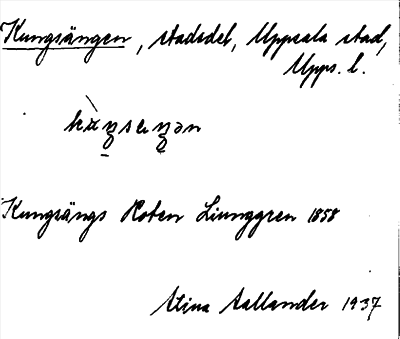 Kungsängen, stadsdel, Uppsala stad,
Upps. l.
Kungsängs Roten Liunggren 1858
Stina Aallander 1937